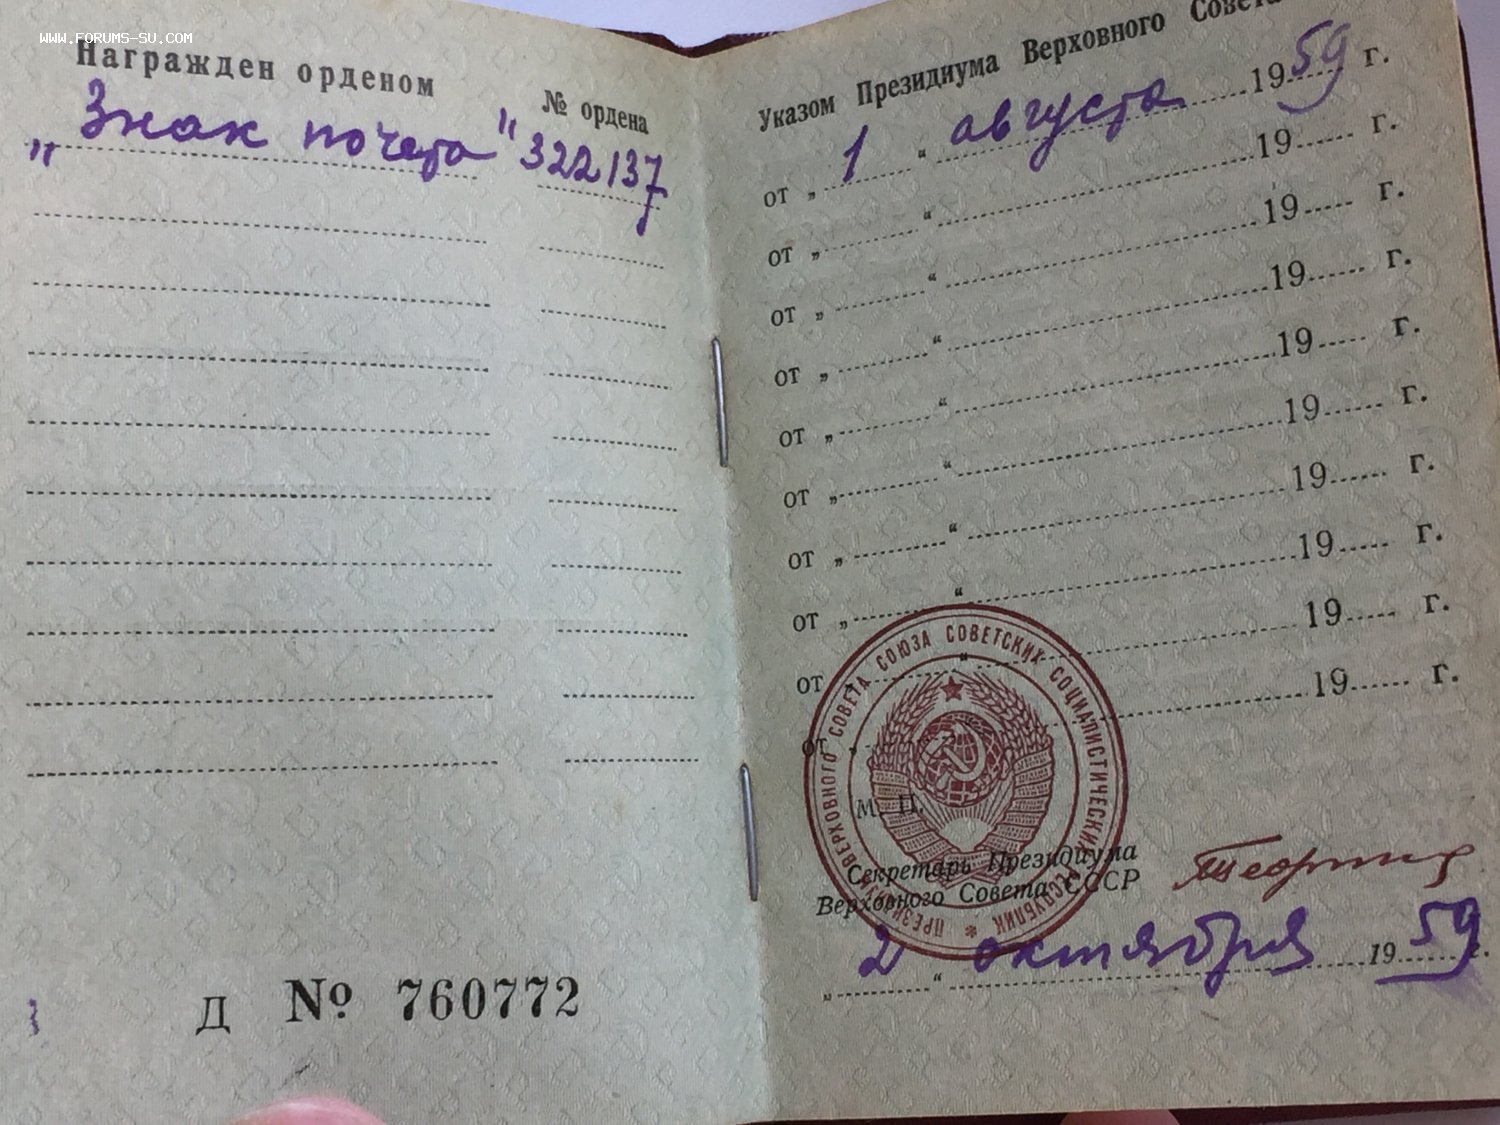 WWW.FORUMS-SU.COM
Награжден орденом
№ ордена
„Знак почета" 322137
Д № 760772
Указом Президиума Верховного Совета
от „ 1 “ августа 1959 г.
от „ “ 19 г.
от „ “ 19 г.
от „ “ 19 г.
от „ “ 19 г.
от „ “ 19 г.
от „ “ 19 г.
от „ “ 19 г.
от „ “ 19 г.
от „ 19 г.
М. П.
ПРЕЗИДИУМ ВЕРХОВНОГО СОВЕТА СОЮЗА СОВЕТСКИХ СОЦИАЛИСТИЧЕСКИХ РЕСПУБЛИК *
Секретарь Президиума
Верховного Совета СССР
„ 2 “ октября 1959 г.